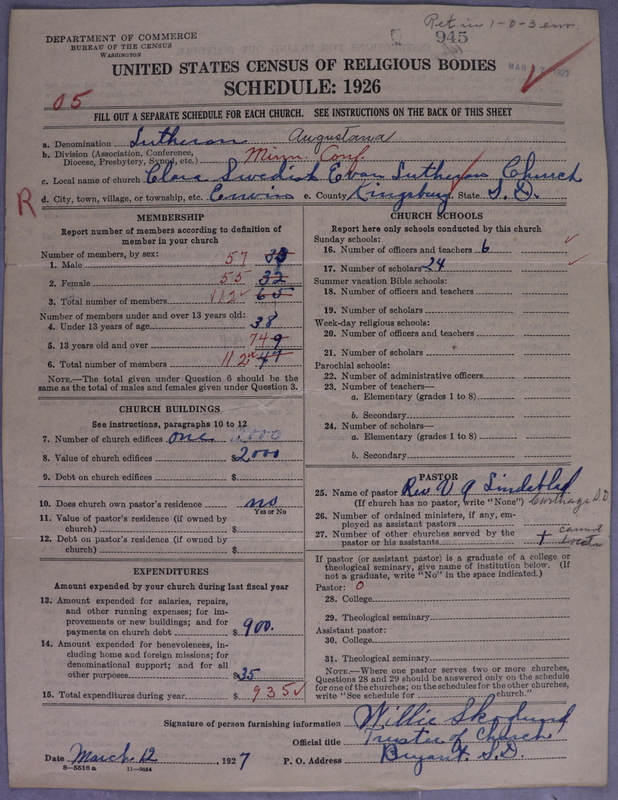 Ret in 1-0-3 enr.
DEPARTMENT OF COMMERCE
BUREAU OF THE CENSUS
WASHINGTON
945
MAR 17 1927
UNITED STATES CENSUS OF RELIGIOUS BODIES
SCHEDULE: 1926
05
FILL OUT A SEPARATE SCHEDULE FOR EACH CHURCH. SEE INSTRUCTIONS ON THE BACK OF THIS SHEET
a. Denomination Lutheran Augustana
b. Division (Association, Conference, Diocese, Presbytery, Synod, etc.) Minn. Conf.
c. Local name of church Clara Swedish Evan Lutheran Church
R d. City, town, village, or township, etc. Erwin e. County Kingsbury State S. D.
MEMBERSHIP
Report number of members according to definition of
member in your church
Number of members, by sex:
1. Male 57 33
2. Female 55 32
3. Total number of members 112 65
Number of members under and over 13 years old:
4. Under 13 years of age 38
5. 13 years old and over 74 9
6. Total number of members 112 47
NOTE.—The total given under Question 6 should be the
same as the total of males and females given under Question 3.
CHURCH BUILDINGS
See instructions, paragraphs 10 to 12
7. Number of church edifices one 2000
8. Value of church edifices $2000
9. Debt on church edifices $
10. Does church own pastor's residence no
Yes or No
11. Value of pastor's residence (if owned by
church) $
12. Debt on pastor's residence (if owned by
church) $
EXPENDITURES
Amount expended by your church during last fiscal year
13. Amount expended for salaries, repairs,
and other running expenses; for im-
provements or new buildings; and for
payments on church debt $900.
14. Amount expended for benevolences, in-
cluding home and foreign missions; for
denominational support; and for all
other purposes $35
15. Total expenditures during year $935
CHURCH SCHOOLS
Report here only schools conducted by this church
Sunday schools:
16. Number of officers and teachers 6
17. Number of scholars 24
Summer vacation Bible schools:
18. Number of officers and teachers
19. Number of scholars
Week-day religious schools:
20. Number of officers and teachers
21. Number of scholars
Parochial schools:
22. Number of administrative officers
23. Number of teachers—
a. Elementary (grades 1 to 8)
b. Secondary
24. Number of scholars—
a. Elementary (grades 1 to 8)
b. Secondary
PASTOR
25. Name of pastor Rev. V A Lindeblad
(If church has no pastor, write "None") Carthage S.D
26. Number of ordained ministers, if any, em-
ployed as assistant pastors
27. Number of other churches served by the
pastor or his assistants † cannot locate
If pastor (or assistant pastor) is a graduate of a college or
theological seminary, give name of institution below. (If
not a graduate, write "No" in the space indicated.)
Pastor: 0
28. College
29. Theological seminary
Assistant pastor:
30. College
31. Theological seminary
NOTE.—Where one pastor serves two or more churches,
Questions 28 and 29 should be answered only on the schedule
for one of the churches; on the schedules for the other churches,
write "See schedule for church."
Signature of person furnishing information Willie Skoglund
Official title Trustee of Church
Date March 12, 1927 P. O. Address Bryant. S.D.
8—5518 a 11—9084